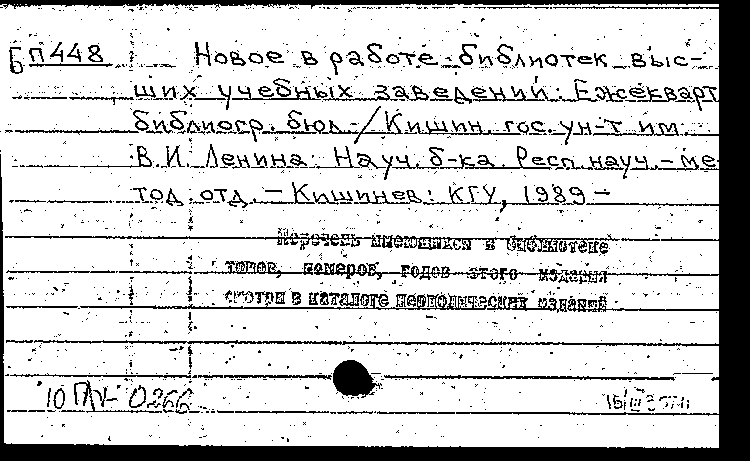 Бп448 Новое в работе библиотек выс-
ших учебных заведений: Ежекварт
библиогр. бюл. / Кишин. гос. ун-т им.
В.И. Ленина. Науч. б-ка. Респ. науч.-ме-
тод. отд. – Кишинев: КГУ, 1989 –
Перечень имеющихся в библиотеке
томов, номеров, годов этого издания
смотри в каталоге периодических изданий
0266